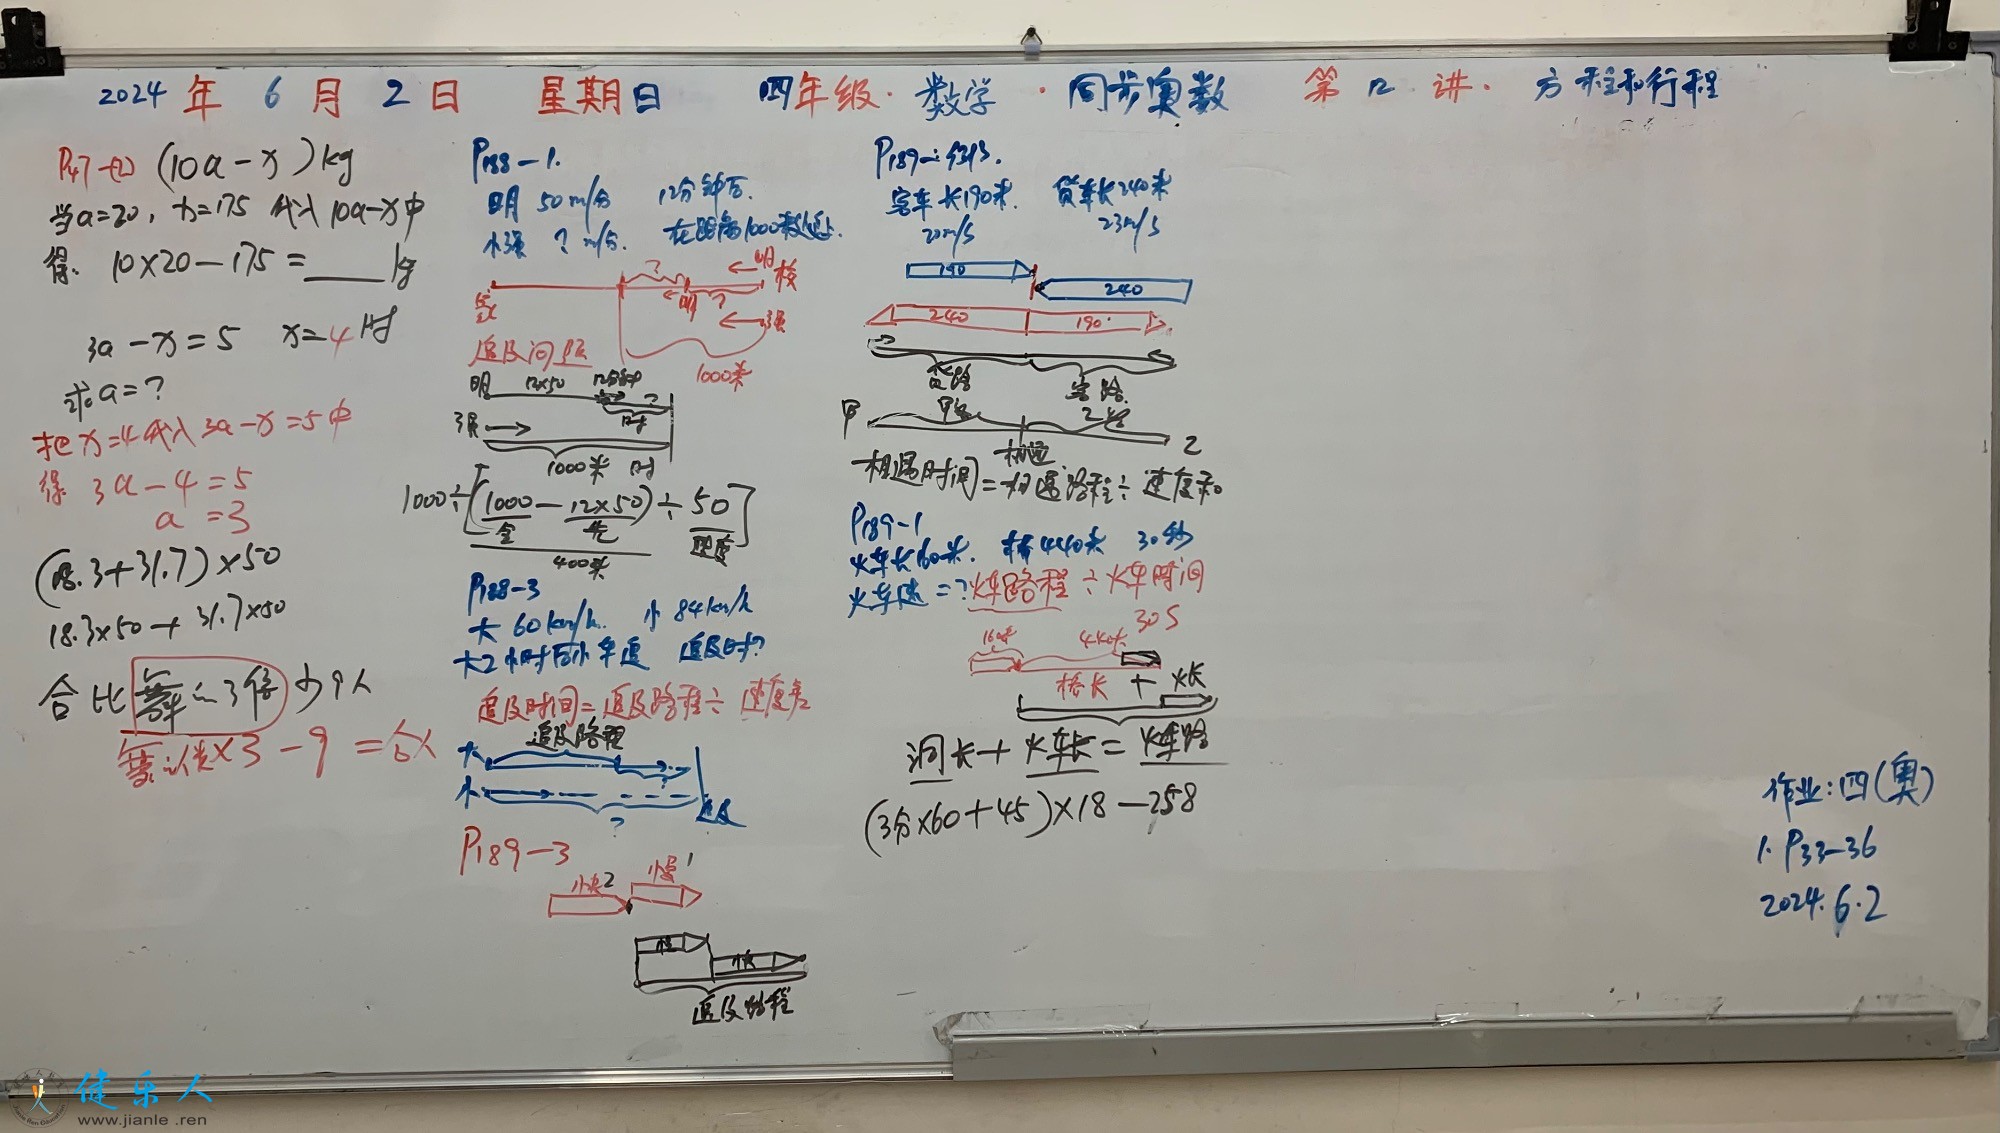 2024年6月2日 星期日 四年级·数学·同步奥数 第12讲·方程和行程
(10a-x)kg
当a=20,x=175代入10a-x中
得. 10×20-175=____kg
3a-x=5 x=4时
求a=?
把x=4代入3a-x=5中
得 3a-4=5
a=3
(18.3+31.7)×50
18.3×50+31.7×50
合比舞的3倍少9人
舞的人数×3-9=合人
P188-1.
明 50m/分 12分钟后.
小强 ?m/分. 在距离1000米处追上.
? ←明 校
家 明 ? ←强
追及问题 1000米
明 12×50 12分钟 ?
强 时
1000米 时
1000÷[(1000-12×50)÷50]
全 先 速度
400米
P188-3
大 60km/h. 小 84km/h
大2小时后小车追 追及时?
追及时间=追及路程÷速度差
追及路程
大
小 ? 追及
P189-3
小快2 小慢1
追及路程
P189-1:例3.
客车长190米. 货车长240米
20m/s 23m/s
190
240
240 190
货路 客路
甲 甲路 乙路
相遇 乙
相遇时间=相遇路程÷速度和
P189-1
火车长160米. 桥440米 30秒
火车速=?火车路程÷火车时间
30S
160米 440米
桥长+火长
洞长+火车长=火车路
(3分×60+45)×18-258
作业:四(奥)
1. P33-36
2024.6.2
健乐人
www.jianle.ren